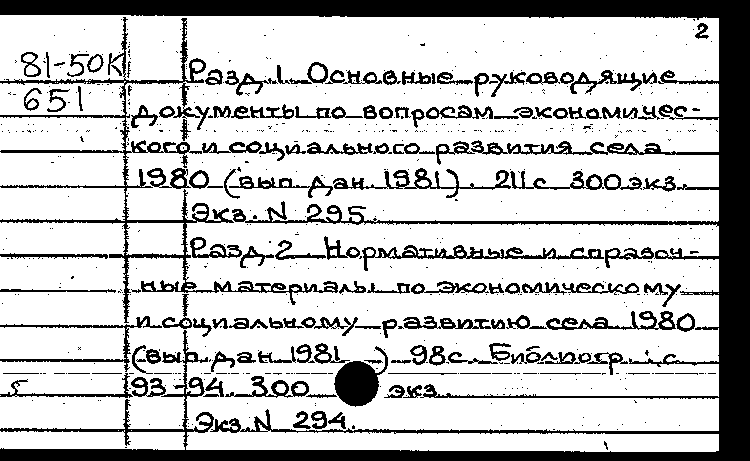 2
81-50К Разд. 1 Основные руководящие
651 документы по вопросам экономичес-
кого и социального развития села
1980 (вып. дан. 1981). 211 с 300 экз.
Экз. N 295.
Разд. 2 Нормативные и справоч-
ные материалы по экономическому
и социальному развитию села 1980
(вып. дан. 1981 ) 98 с. Библиогр.: с
5 93-94. 300 экз.
Экз. N 294.